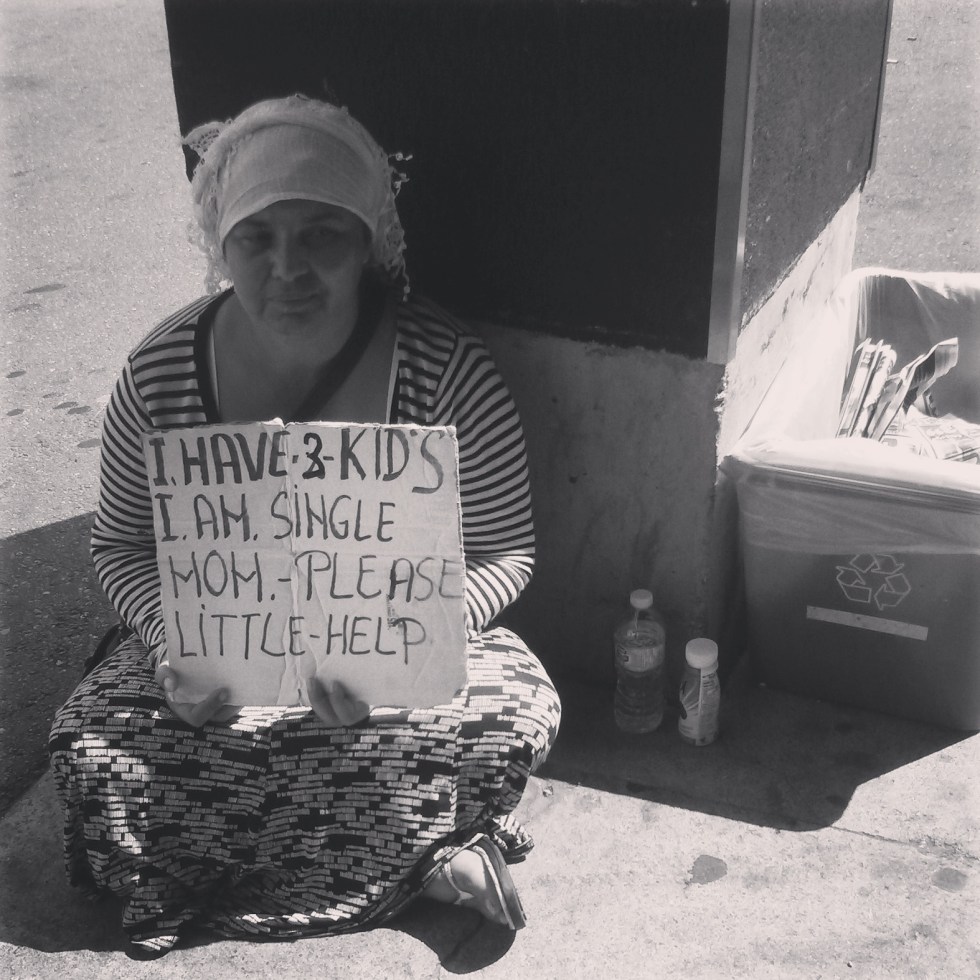 I.HAVE.3-KID'S
I.AM.SiNGLE
MOM.-PLEASE
LiTTLE-HELP